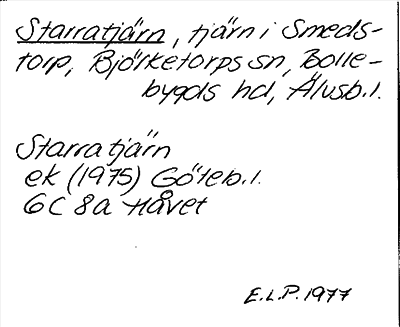 Starratjärn, tjärn i Smeds-
torp, Björketorps sn, Bolle-
bygds hd, Älvsb.l.
Starratjärn
ek (1975) Göteb.l.
6C 8a Håvet
E.L.P. 1977